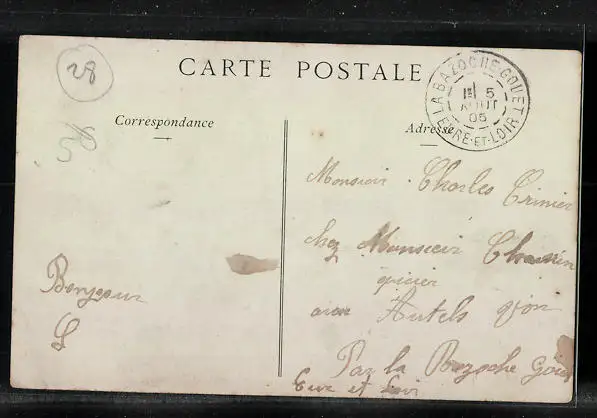 28
CARTE POSTALE
LA BAZOCHE-GOUET
5
AOUT
05
EURE-ET-LOIR
Correspondance
Adresse
Monsieur Charles
chez Monsieur
Bonjour
aux Autels
Par la Bazoche Gouet
Eure et Loir